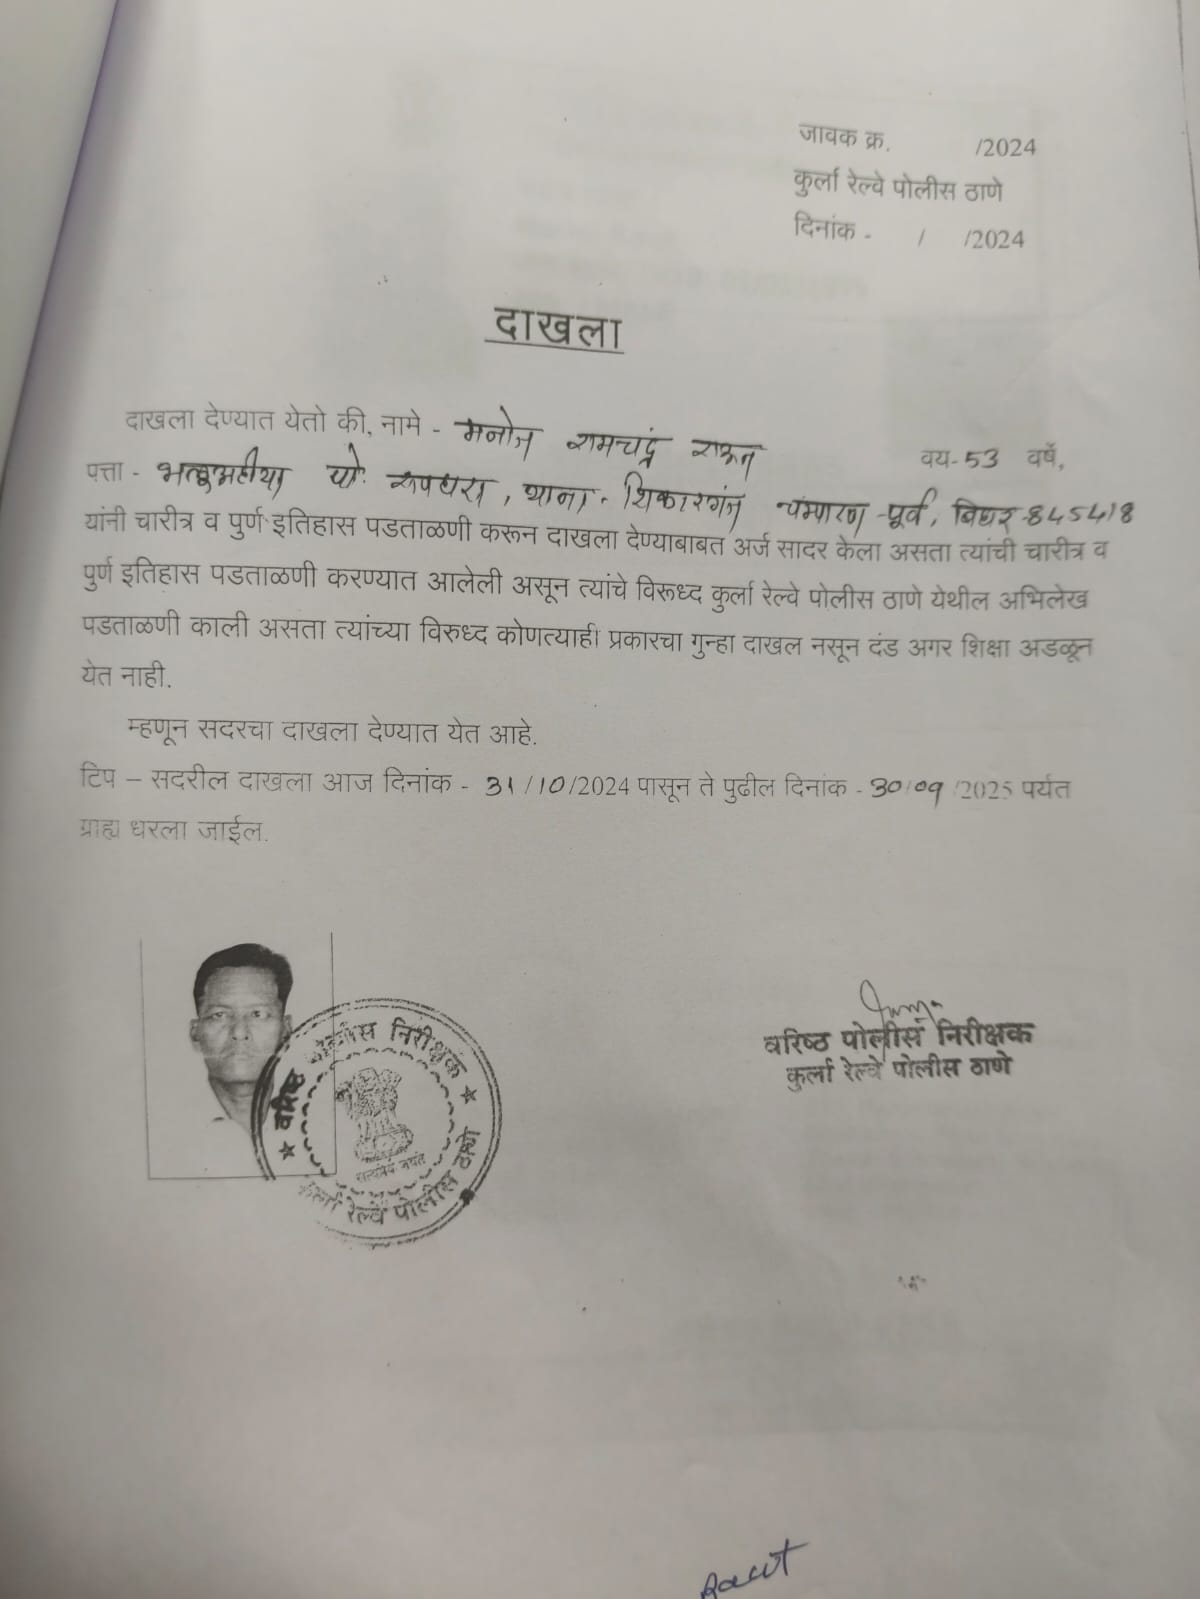 जावक क्र. /2024
कुर्ला रेल्वे पोलीस ठाणे
दिनांक - / /2024
दाखला
दाखला देण्यात येतो की, नामे - मनोज रामचंद्र राऊत वय-53 वर्षे,
पत्ता - पो. रुपधरा, थाना. शिकारगंज चम्पारण-पूर्व, बिहार-845418
यांनी चारीत्र व पुर्ण इतिहास पडताळणी करून दाखला देण्याबाबत अर्ज सादर केला असता त्यांची चारीत्र व
पुर्ण इतिहास पडताळणी करण्यात आलेली असून त्यांचे विरूध्द कुर्ला रेल्वे पोलीस ठाणे येथील अभिलेख
पडताळणी काली असता त्यांच्या विरुध्द कोणत्याही प्रकारचा गुन्हा दाखल नसून दंड अगर शिक्षा अडळून
येत नाही.
म्हणून सदरचा दाखला देण्यात येत आहे.
टिप – सदरील दाखला आज दिनांक - 31/10/2024 पासून ते पुढील दिनांक - 30/09/2025 पर्यत
ग्राह्य धरला जाईल.
वरिष्ठ पोलीस निरीक्षक
कुर्ला रेल्वे पोलीस ठाणे
वरिष्ठ पोलीस निरीक्षक
सत्यमेव जयते
कुर्ला रेल्वे पोलीस ठाणे
Raut